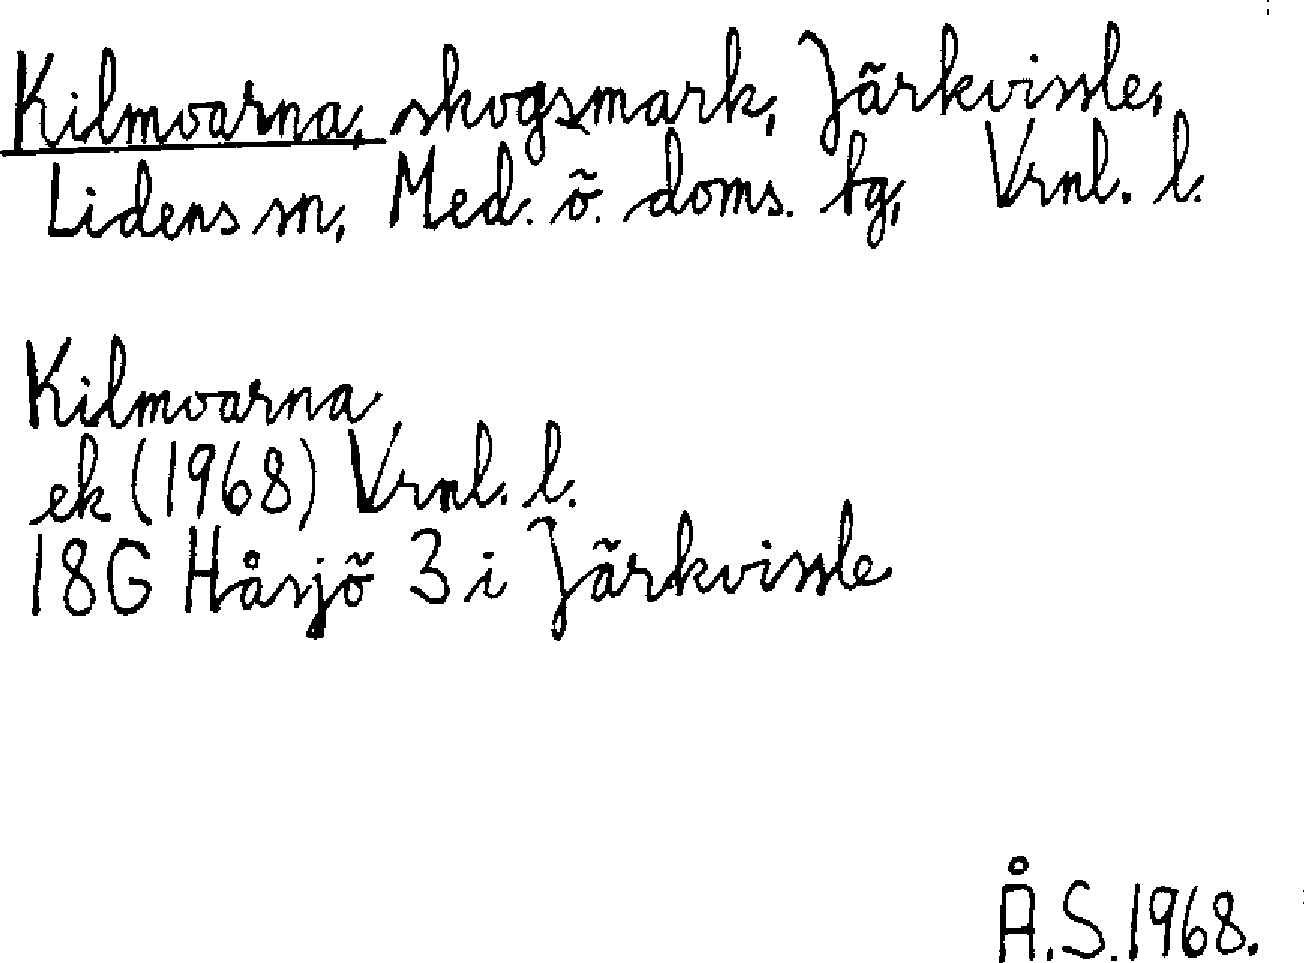 Kilmoarna, skogsmark, Järkvissle,
Lidens sn, Med. ö. doms. tg, Vrnl. l.
Kilmoarna
ek (1968) Vrnl. l.
18G Håsjö 3 i Järkvissle
Å.S. 1968.